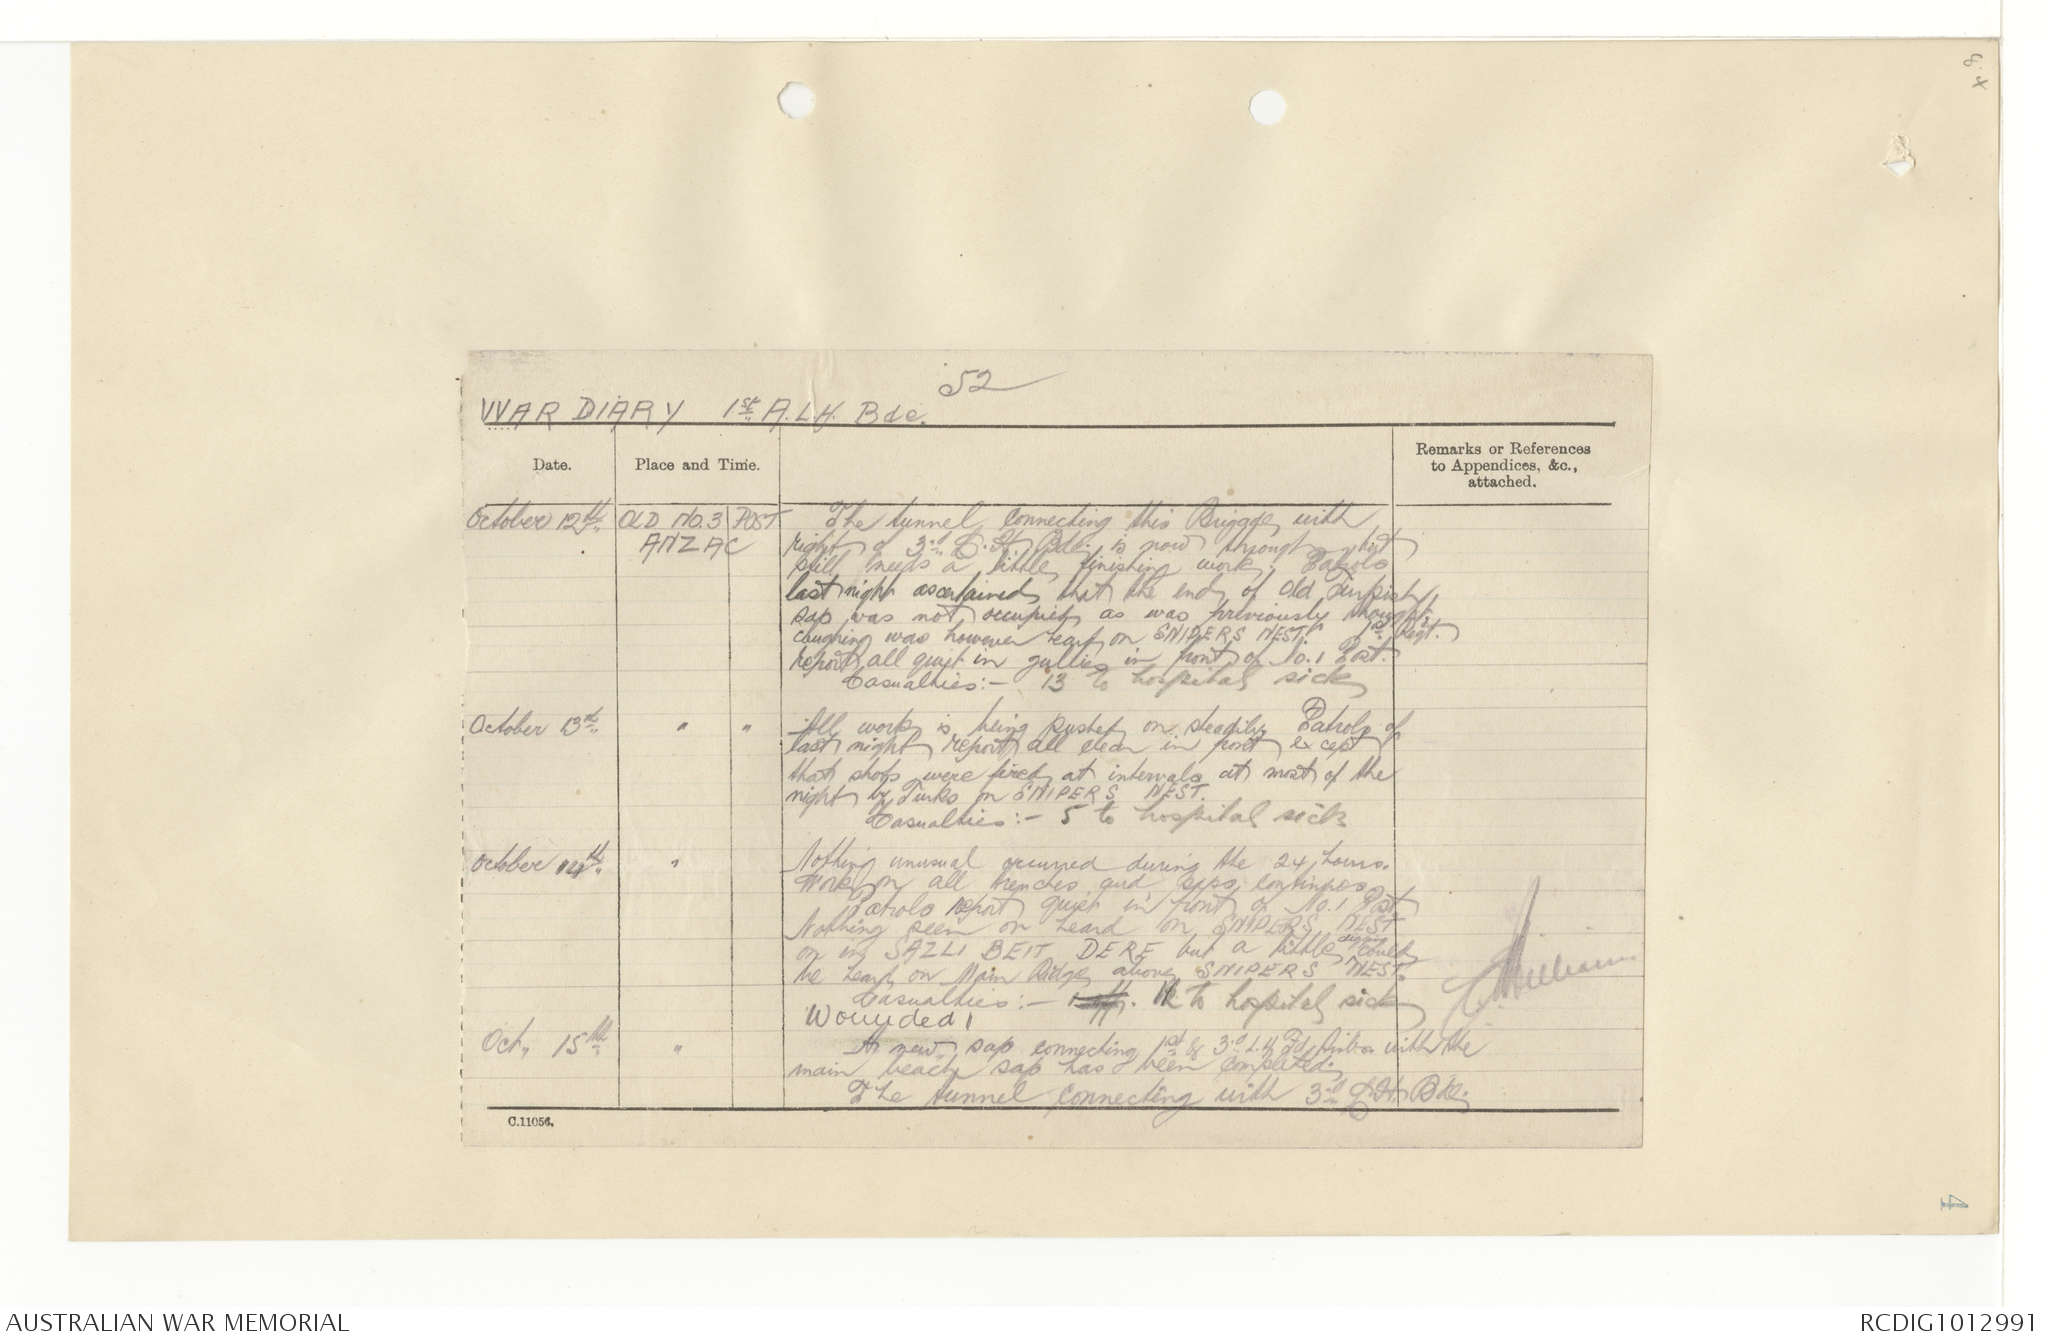 52
WAR DIARY 1st A.L.H. Bde.
Date.
Place and Time.
Remarks or References
to Appendices, &c.,
attached.
October 12th
OLD NO.3 POST
ANZAC
The tunnel connecting this Brigade with
right of 3rd L.H. Bde. is now through but
still needs a little finishing work. Patrols
last night ascertained that the end of Old Turkish
sap was not occupied as was previously thought,
coughing was however heard on SNIPERS NEST. 1st Regt.
report all quiet in gullies in front of No.1 Post.
Casualties:- 13 to hospital sick
October 13th
" "
All work is being pushed on steadily Patrols of
last night report all clear in front except
that shots were fired at intervals at most of the
night by Turks on SNIPERS NEST.
Casualties:- 5 to hospital sick
October 14th
"
Nothing unusual occurred during the 24 hours.
Work on all trenches and saps continues
Patrols report quiet in front of No.1 Post
Nothing seen or heard on SNIPERS NEST
or in SAZLI BEIT DERE but a little digging could
be heard on Main Ridge above SNIPERS NEST.
Casualties:- 11 to hospital sick
Wounded 1
Oct. 15th
"
A new sap connecting 1st & 3rd L.H. Fd Amb. with the
main beach sap has been completed.
The tunnel connecting with 3rd L.H. Bde.
C.11056.
Williams
8.x
4
AUSTRALIAN WAR MEMORIAL
RCDIG1012991